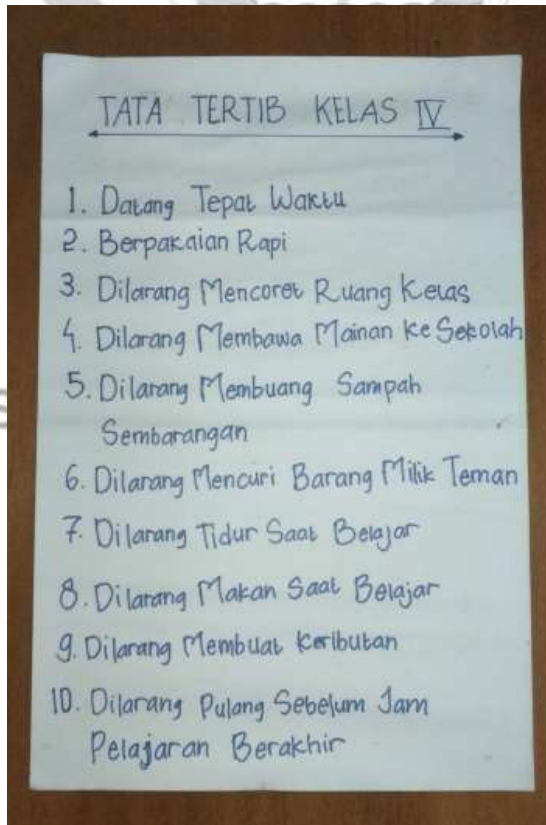 TATA TERTIB KELAS IV
1. Datang Tepat Waktu
2. Berpakaian Rapi
3. Dilarang Mencoret Ruang Kelas
4. Dilarang Membawa Mainan ke Sekolah
5. Dilarang Membuang Sampah
Sembarangan
6. Dilarang Mencuri Barang Milik Teman
7. Dilarang Tidur Saat Belajar
8. Dilarang Makan Saat Belajar
9. Dilarang Membuat Keributan
10. Dilarang Pulang Sebelum Jam
Pelajaran Berakhir